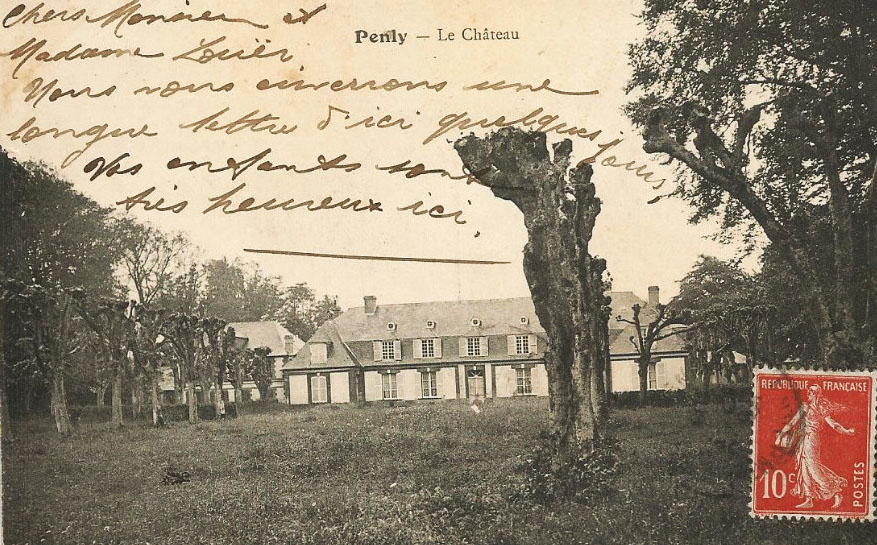 Chers Monsieur et
Penly — Le Château
Madame Louër
Nous vous enverrons une
longue lettre d'ici quelques jours,
Vos enfants sont
très heureux ici,
REPUBLIQUE FRANÇAISE
10c
POSTES